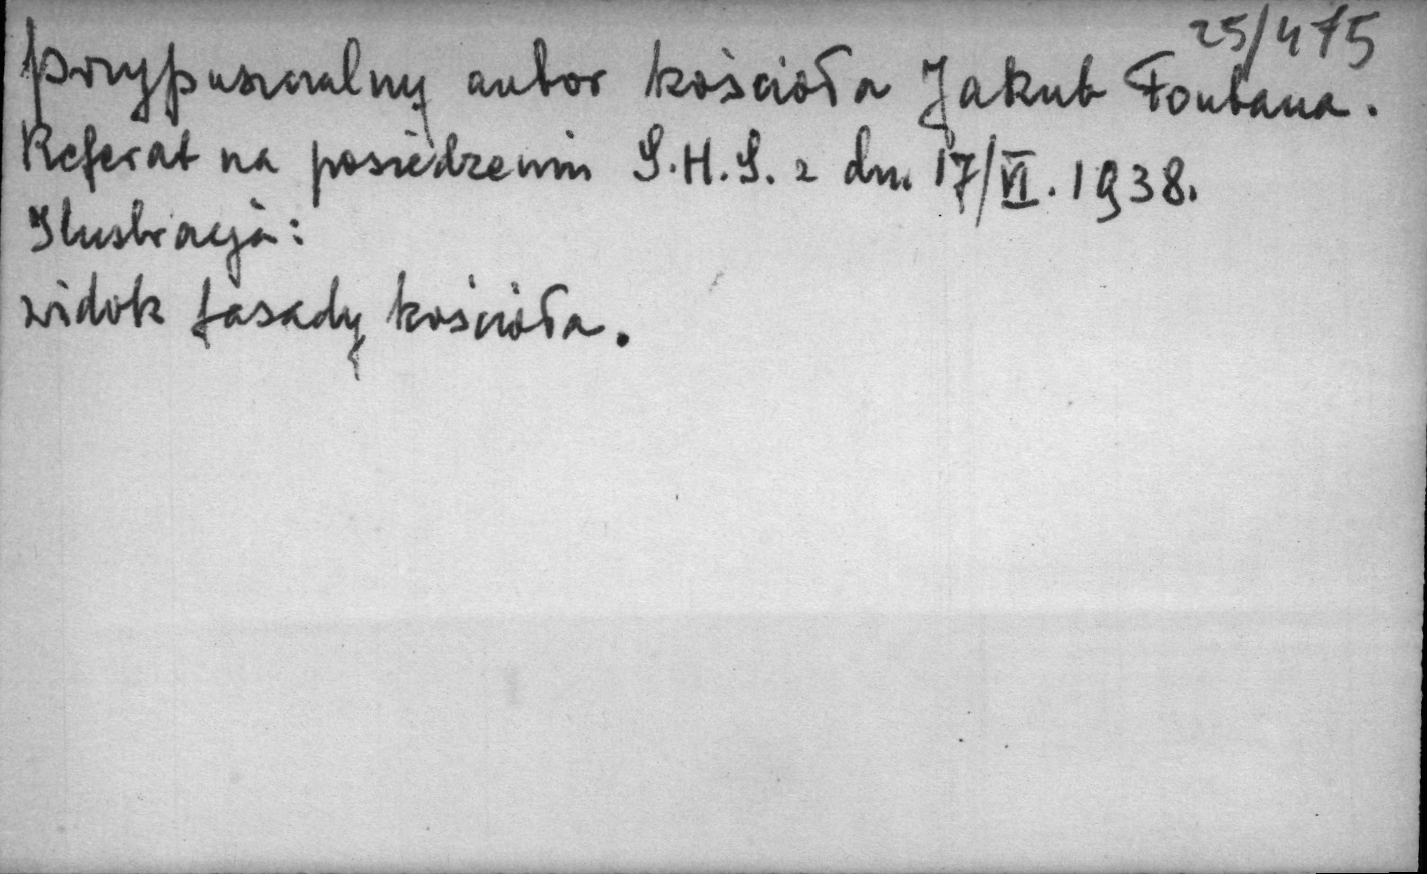 25/475
przypuszczalny autor kościoła Jakub Fontana.
Referat na posiedzeniu S.H.S. z dn. 17/VI. 1938.
Ilustracja:
widok fasady kościoła.